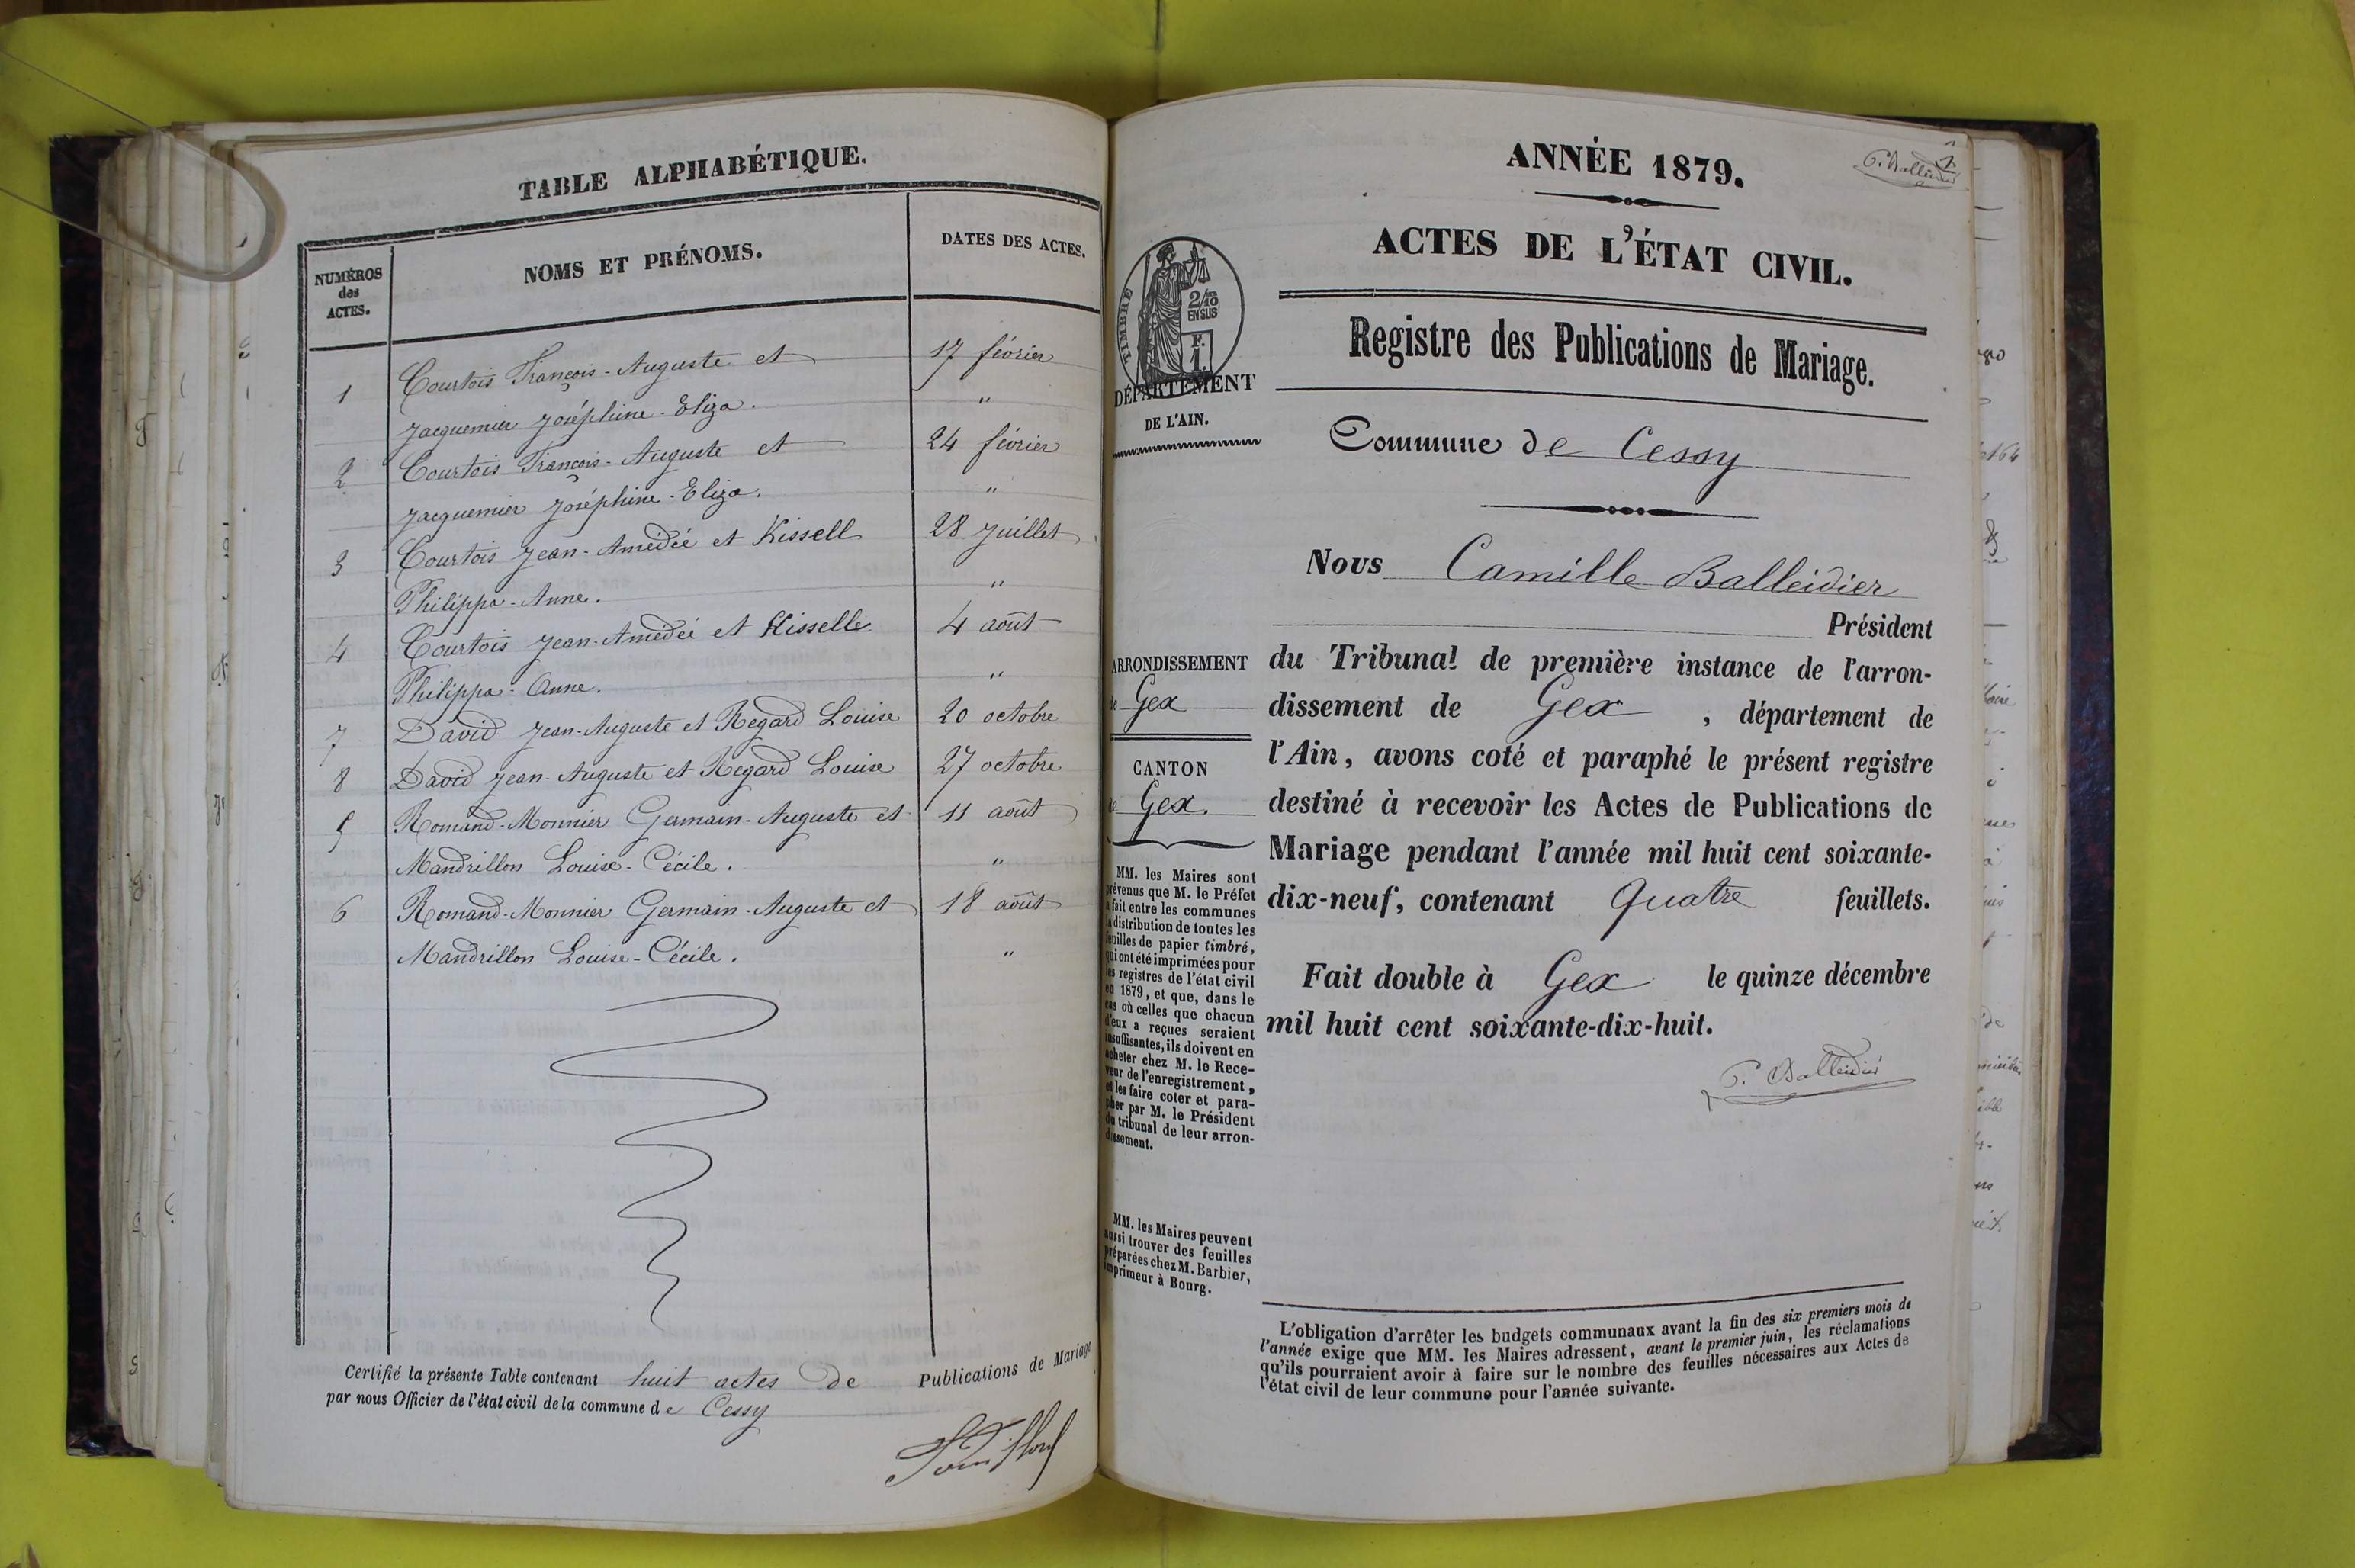 TABLE ALPHABÉTIQUE.
NUMÉROS
des
ACTES.
NOMS ET PRÉNOMS.
DATES DES ACTES.
1 Courtois François-Auguste et 17 février
Jacquemier Joséphine-Eliza. "
2 Courtois François-Auguste et 24 février
Jacquemier Joséphine-Eliza. "
3 Courtois Jean-Amédée et Kissell 28 juillet
Philippa-Anne. "
4 Courtois Jean-Amédée et Kisselle 4 août
Philippa-Anne. "
7 David Jean-Auguste et Regard Louise 20 octobre
8 David Jean-Auguste et Regard Louise 27 octobre
5 Romand-Monnier Germain-Auguste et 11 août
Mandrillon Louise-Cécile. "
6 Romand-Monnier Germain-Auguste et 18 août
Mandrillon Louise-Cécile. "
Certifié la présente Table contenant huit actes de Publications de Mariage
par nous Officier de l'état civil de la commune de Cessy
ANNÉE 1879.
C. Balleidier
1
ACTES DE L'ÉTAT CIVIL.
TIMBRE
2/10
EN SUS
F.
1.
DÉPARTEMENT
DE L'AIN.
Registre des Publications de Mariage.
Commune de Cessy
Nous Camille Balleidier
Président
du Tribunal de première instance de l'arron-
dissement de Gex, département de
l'Ain, avons coté et paraphé le présent registre
destiné à recevoir les Actes de Publications de
Mariage pendant l'année mil huit cent soixante-
dix-neuf, contenant Quatre feuillets.
Fait double à Gex le quinze décembre
mil huit cent soixante-dix-huit.
C. Balleidier
ARRONDISSEMENT
de Gex
CANTON
de Gex.
MM. les Maires sont
prévenus que M. le Préfet
a fait entre les communes
la distribution de toutes les
feuilles de papier timbré,
qui ont été imprimées pour
les registres de l'état civil
en 1879, et que, dans le
cas où celles que chacun
d'eux a reçues seraient
insuffisantes, ils doivent en
acheter chez M. le Rece-
veur de l'enregistrement,
et les faire coter et para-
pher par M. le Président
du tribunal de leur arron-
dissement.
MM. les Maires peuvent
aussi trouver des feuilles
préparées chez M. Barbier,
imprimeur à Bourg.
L'obligation d'arrêter les budgets communaux avant la fin des six premiers mois de
l'année exige que MM. les Maires adressent, avant le premier juin, les réclamations
qu'ils pourraient avoir à faire sur le nombre des feuilles nécessaires aux Actes de
l'état civil de leur commune pour l'année suivante.